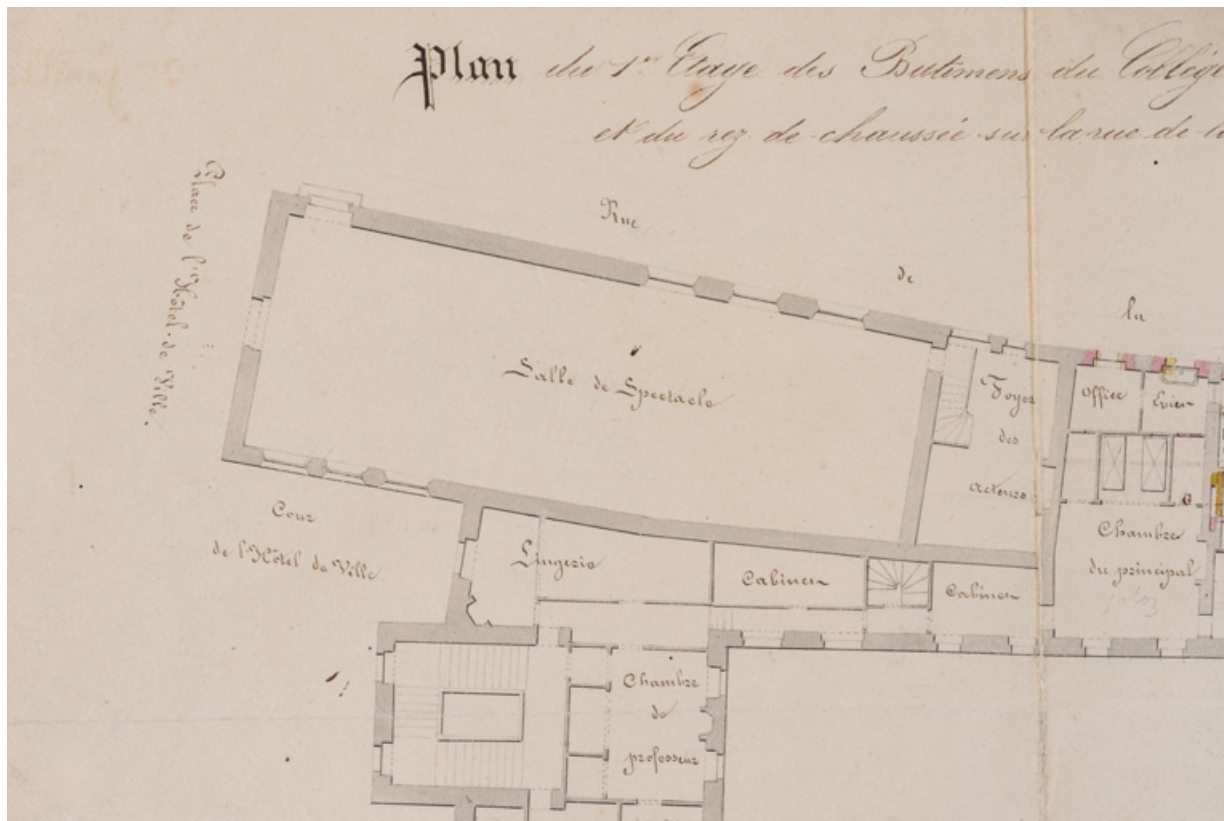 Plan du 1er Etage des Batimens du Collège
et du rez de chaussée sur la rue de la
Place de l'Hôtel-de Ville.
Rue
de
la
Salle de Spectacle
Foyer
des
acteurs
Office
Evier
G
Chambre
du principal
Cour
de l'Hôtel de Ville
Lingerie
Cabinet
Cabinet
Chambre
de
professeur